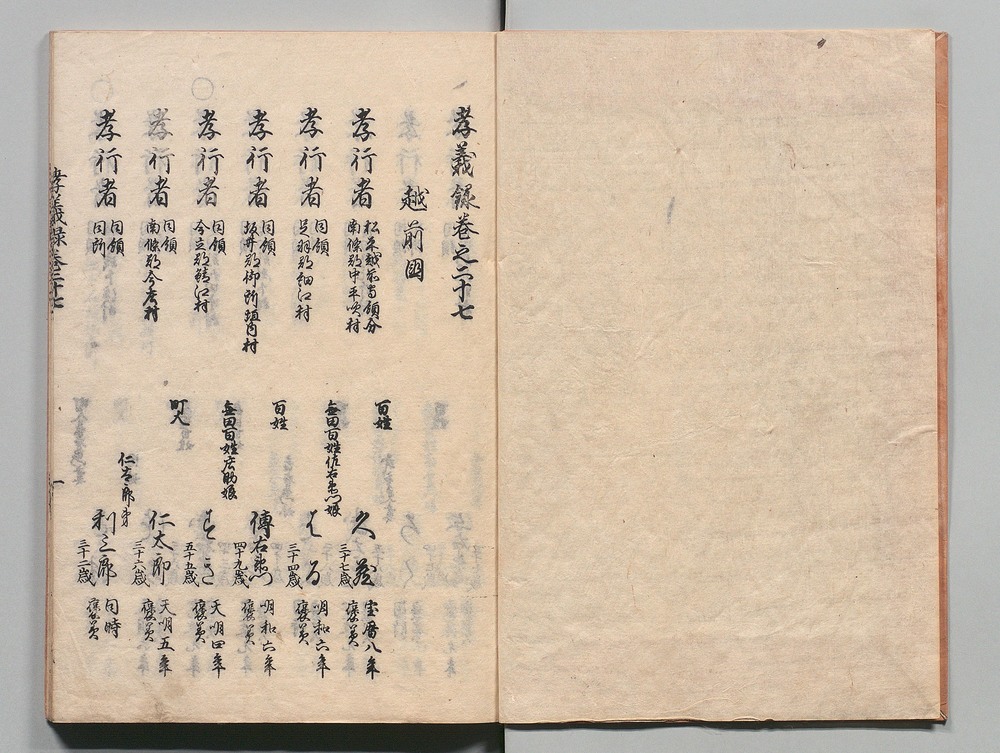 孝義録巻之二十七
越前国
孝行者 松平越前守領分 南條郡中平吹村 百姓 久蔵 三十七歳 宝暦八年 褒美
孝行者 同領 足羽郡細江村 無田百姓佐右衛門娘 はる 三十四歳 明和六年 褒美
孝行者 同領 坂井郡御所垣内村 百姓 傳右衛門 四十九歳 明和六年 褒美
孝行者 同領 今立郡鯖江村 無田百姓広助娘 すき 五十五歳 天明四年 褒美
孝行者 同領 南條郡今庄村 町人 仁太郎 三十六歳 天明五年 褒美
孝行者 同領 同所 仁太郎弟 利三郎 三十二歳 同時 褒美
孝義録巻二十七
一